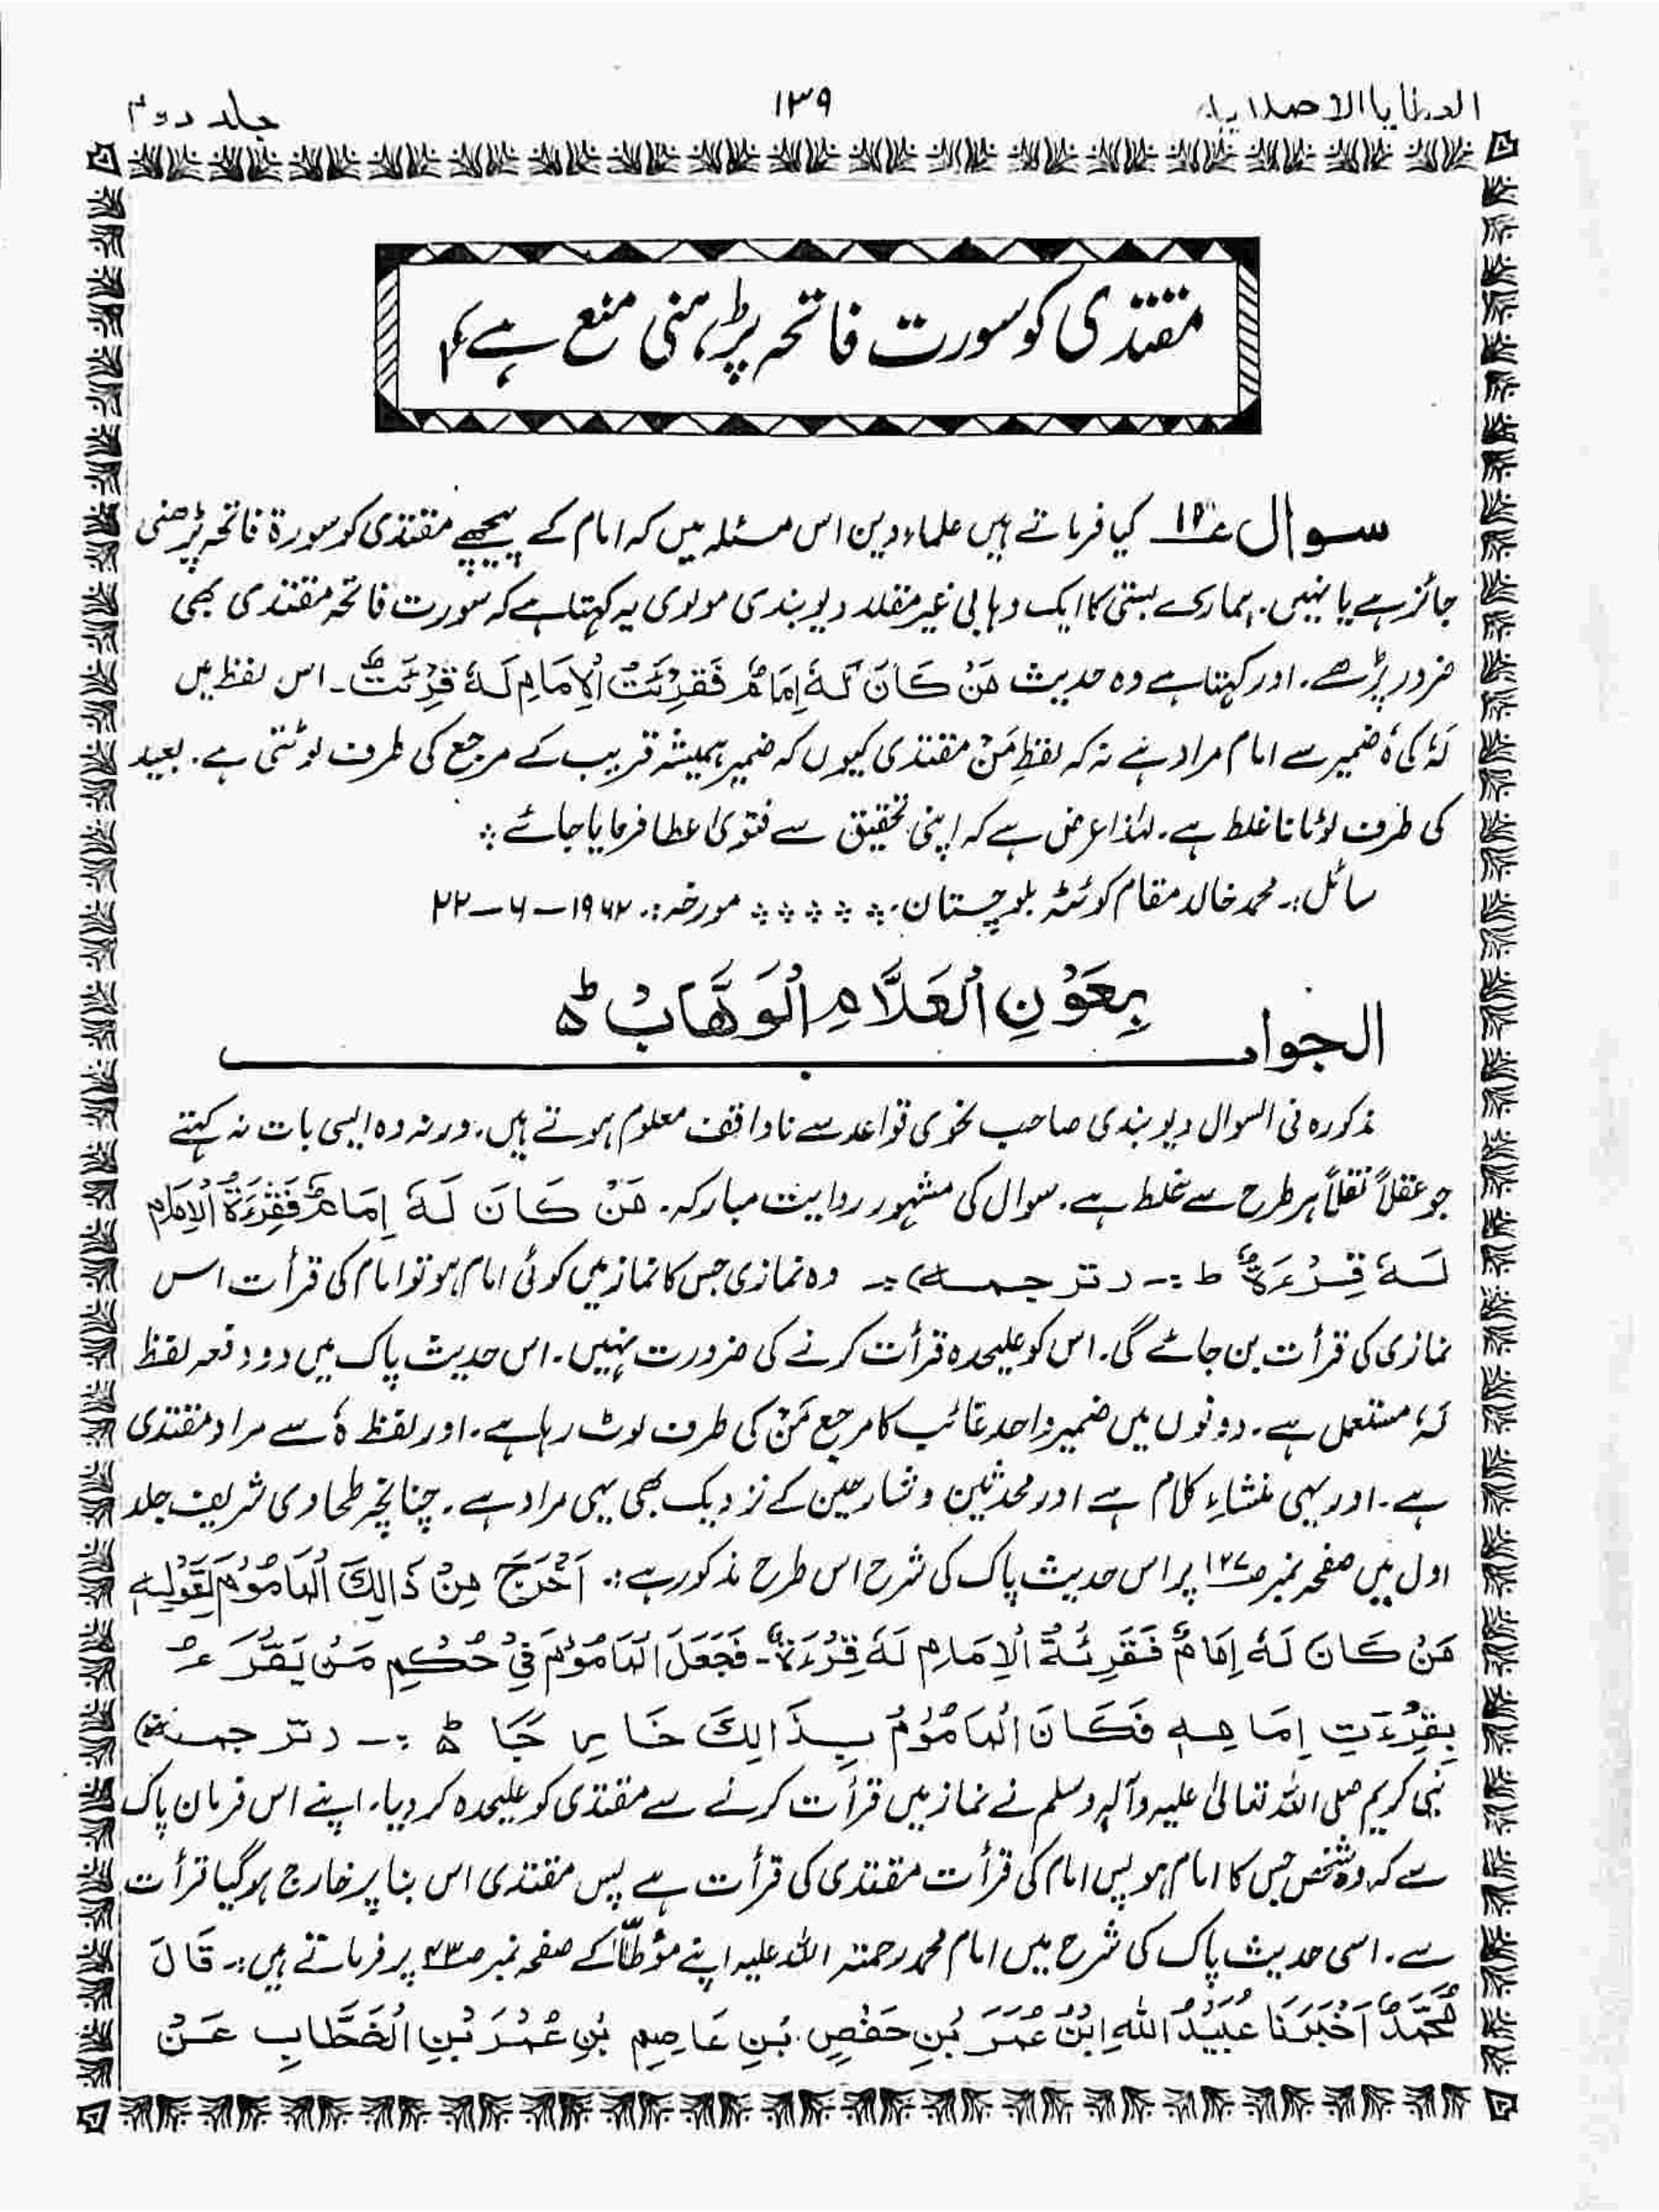 العطایا الاحمدیہ
۱۳۹
جلد دوم
مقتدی کو سورت فاتحہ پڑھنی منع ہے
سوال کیا فرماتے ہیں علماء دین اس مسئلہ میں کہ امام کے پیچھے مقتدی کو سورۃ فاتحہ پڑھنی
جائز ہے یا نہیں۔ ہمارے بستی کا ایک وہابی غیر مقلد دیوبندی مولوی یہ کہتا ہے کہ سورت فاتحہ مقتدی بھی
ضرور پڑھے۔ اور کہتا ہے وہ حدیث مَنْ کَانَ لَہٗ اِمَامٌ فَقَرِئَتُ الْاِمَامِ لَہٗ قِرْئَتٌ۔ اس لفظ میں
لَہٗ کی ہٗ ضمیر سے امام مراد ہے نہ کہ لفظِ مَنْ مقتدی کیوں کہ ضمیر ہمیشہ قریب کے مرجع کی طرف لوٹتی ہے۔ بعید
کی طرف لوٹانا غلط ہے۔ لہٰذا عرض ہے کہ اپنی تحقیق سے فتویٰ عطا فرمایا جائے
سائل:۔ محمد خالد مقام کوئٹہ بلوچستان مورخہ:۔ ۱۹۶۲–۶–۲۲
بِعَوْنِ الْعَلَّامِ الْوَھَّابْ ط
الجواب
مذکورہ فی السوال دیوبندی صاحب نحوی قواعد سے ناواقف معلوم ہوتے ہیں۔ ورنہ وہ ایسی بات نہ کہتے
جو عقلاً نقلاً ہر طرح سے غلط ہے۔ سوال کی مشہور روایت مبارکہ۔ مَنْ کَانَ لَہٗ اِمَامٌ فَقِرْءَۃُ الْاِمَامِ
لَہٗ قِرْءَۃٌ ط :۔ (ترجمہ) :۔ وہ نمازی جس کا نماز میں کوئی امام ہو تو امام کی قرأت اس
نمازی کی قرأت بن جائے گی۔ اس کو علیحدہ قرأت کرنے کی ضرورت نہیں۔ اس حدیث پاک میں دو دفعہ لفظ
لَہٗ مستعمل ہے۔ دونوں میں ضمیر واحد غائب کا مرجع مَنْ کی طرف لوٹ رہا ہے۔ اور لفظ ہٗ سے مراد مقتدی
ہے۔ اور یہی منشاءِ کلام ہے اور محدثین و شارحین کے نزدیک بھی یہی مراد ہے۔ چنانچہ طحاوی شریف جلد
اول میں صفحہ نمبر ۱۲۷ پر اس حدیث پاک کی شرح اس طرح مذکور ہے:۔ اَخْرَجَ مِنْ ذَالِکَ الْمَامُوْمَ لِقَوْلِہٖ
مَنْ کَانَ لَہٗ اِمَامٌ فَقَرِئَۃُ الْاِمَامِ لَہٗ قِرْءَۃٌ۔ فَجَعَلَ الْمَامُوْمَ فِیْ حُکْمِ مَنْ یَقْرَءُ
بِقِرْءَتِ اِمَامِہٖ فَکَانَ الْمَامُوْمُ بِذَالِکَ خَارِجًا ط :۔ (ترجمہ)
نبی کریم صلی اللہ تعالیٰ علیہ وآلہٖ وسلم نے نماز میں قرأت کرنے سے مقتدی کو علیحدہ کر دیا۔ اپنے اس فرمان پاک
سے کہ وہ شخص جس کا امام ہو پس امام کی قرأت مقتدی کی قرأت ہے پس مقتدی اس بنا پر خارج ہو گیا قرأت
سے۔ اسی حدیث پاک کی شرح میں امام محمد رحمتہ اللہ علیہ اپنے مؤطّا کے صفحہ نمبر پر فرماتے ہیں:۔ قَالَ
مُحَمَّدٌ اَخْبَرَنَا عُبَیْدُ اللہِ ابْنُ عُمَرَ بْنِ حَفْصِ بْنِ عَاصِمِ بْنِ عُمَرَ بْنِ الْخَطَّابِ عَنْ